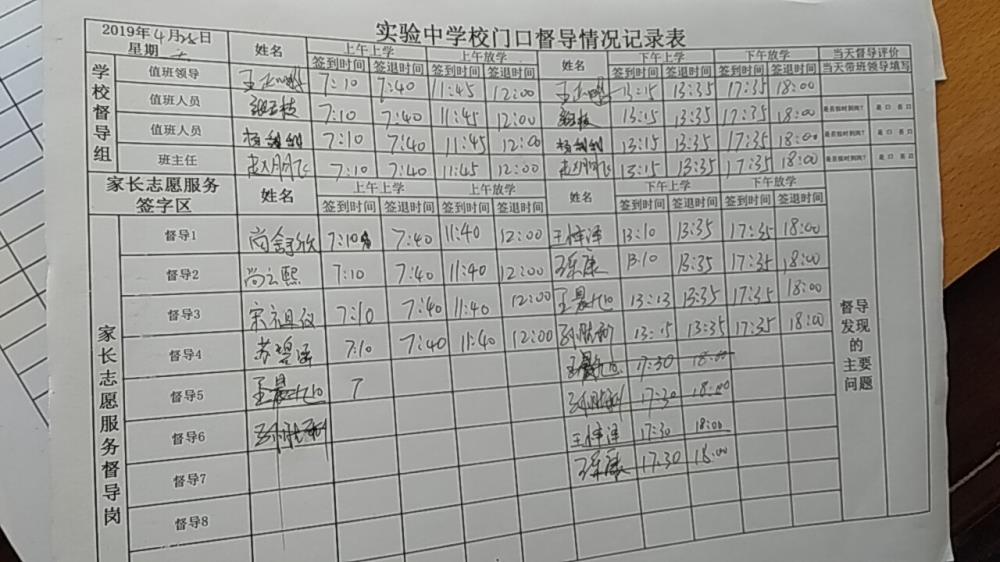 实验中学校门口督导情况记录表
2019年4月26日
星期
姓名 上午上学 上午放学 姓名 下午上学 下午放学 当天督导评价
签到时间 签退时间 签到时间 签退时间 签到时间 签退时间 签到时间 签退时间 当天带班领导填写
学校督导组
值班领导 7:10 7:40 11:45 12:00 13:15 13:35 17:35 18:00
值班人员 7:10 7:40 11:45 12:00 13:15 13:35 17:35 18:00 是否按时到岗? 是口 否口
值班人员 7:10 7:40 11:45 12:00 13:15 13:35 17:35 18:00 是否按时到岗? 是口 否口
班主任 赵朋飞 7:10 7:40 11:45 12:00 赵朋飞 13:15 13:35 17:35 18:00 是否按时到岗? 是口 否口
家长志愿服务
签字区
姓名 上午上学 上午放学 姓名 下午上学 下午放学
签到时间 签退时间 签到时间 签退时间 签到时间 签退时间 签到时间 签退时间
家长志愿服务督导岗
督导1 尚舒欣 7:10 7:40 11:40 12:00 王梓泽 13:10 13:35 17:35 18:00
督导2 尚云熙 7:10 7:40 11:40 12:00 康 13:10 13:35 17:35 18:00
督导3 宋祖仪 7:10 7:40 11:40 12:00 王晨 13:13 13:35 17:35 18:00
督导4 苏碧 7:10 7:40 11:40 12:00 13:15 13:35 17:35 18:00
督导5 王晨 7 17:30 18:00
督导6 17:30 18:00
王梓泽 17:30 18:00
督导7 康 17:30 18:00
督导8
督导发现的主要问题